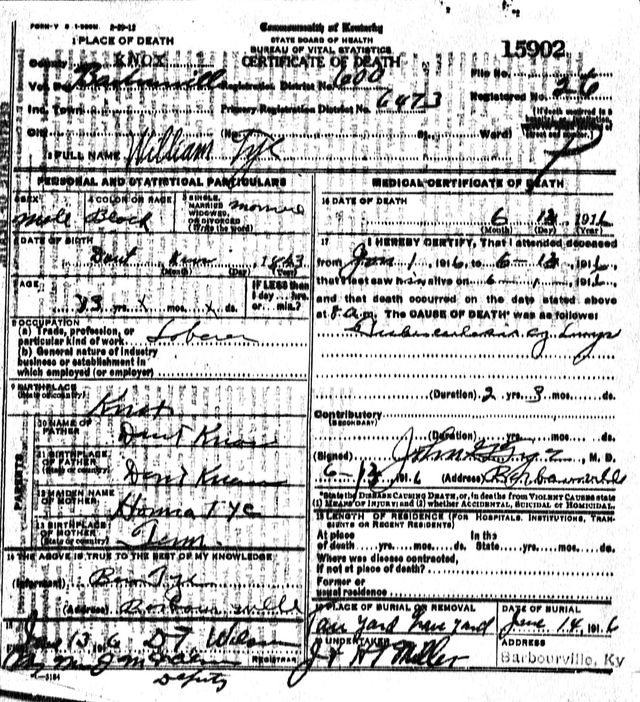 Commonwealth of Kentucky
STATE BOARD OF HEALTH
BUREAU OF VITAL STATISTICS
CERTIFICATE OF DEATH
15902
1 PLACE OF DEATH
County KNOX
Vot. Pct. Barbourville Registration District No. 600 File No.
Inc. Town Primary Registration District No. 6473 Registered No. 26
City (No. St. Ward)
2 FULL NAME William Tye
PERSONAL AND STATISTICAL PARTICULARS
3 SEX Male 4 COLOR OR RACE Black 5 SINGLE, MARRIED WIDOWED, OR DIVORCED (Write the word)
6 DATE OF BIRTH Dont Know, 1863
(Month) (Day) (Year)
7 AGE 53 yrs. x mos. x ds. If LESS than 1 day....hrs. or min.?
8 OCCUPATION
(a) Trade, profession, or particular kind of work Laborer
(b) General nature of industry business or establishment in which employed (or employer)
9 BIRTHPLACE
(State or country) Knox
PARENTS
10 NAME OF FATHER Dont Know
11 BIRTHPLACE OF FATHER
(State or country) Dont Know
12 MAIDEN NAME OF MOTHER Tye
13 BIRTHPLACE OF MOTHER
(State or country) Tenn.
14 THE ABOVE IS TRUE TO THE BEST OF MY KNOWLEDGE
(Informant) Tye
(Address) Barbourville
15
13 6 D T Wilson
REGISTRAR
Deputy
MEDICAL CERTIFICATE OF DEATH
16 DATE OF DEATH
6 12 1916
(Month) (Day) (Year)
17 I HEREBY CERTIFY, That I attended deceased
from Jan 1, 1916 to 6-12, 1916
that I last saw him alive on 6 - 1916
and that death occurred on the date stated above
at 8 a.m. The CAUSE OF DEATH* was as follows:
Tuberculosis of Lungs
(Duration) 2 yrs. 3 mos. ds.
Contributory
(SECONDARY)
(Duration) yrs. mos. ds.
(Signed) Tye, M. D.
1916 (Address) Barbourville
*State the DISEASE CAUSING DEATH, or, in deaths from VIOLENT CAUSES state
(1) MEANS OF INJURY; and (2) whether ACCIDENTAL, SUICIDAL or HOMICIDAL.
18 LENGTH OF RESIDENCE (FOR HOSPITALS, INSTITUTIONS, TRANSIENTS OR RECENT RESIDENTS).
At place of death....yrs....mos....ds. In the State....yrs....mos....ds.
Where was disease contracted, if not at place of death?
Former or usual residence
19 PLACE OF BURIAL OR REMOVAL yard DATE OF BURIAL June 14, 1916
20 UNDERTAKER Miller ADDRESS Barbourville, Ky